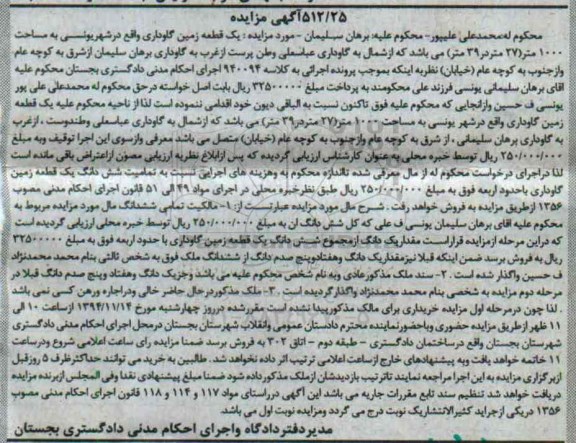 ۵۱۲/۲۵آگهی مزایده
محکوم له:محمدعلی علیپور- محکوم علیه: برهان سلیمانی - مورد مزایده : یک قطعه زمین گاوداری واقع درشهریونسی به مساحت
۱۰۰۰ متر(۲۷ متردر۳۹ متر) می باشد که ازشمال به گاوداری عباسعلی وطن پرست ازغرب به گاوداری برهان سلیمان ازشرق به کوچه عام
وازجنوب به کوچه عام (خیابان) نظریه اینکه بموجب پرونده اجرائی به کلاسه ۹۴-۹۴۰ اجرای احکام مدنی دادگستری بجستان محکوم علیه
اقای برهان سلیمانی یونسی فرزند علی محکومند به پرداخت مبلغ ۳۲۵۰۰۰۰۰ ریال بابت اصل خواسته درحق محکوم له محمدعلی علی پور
یونسی ف حسین وازانجایی که محکوم علیه فوق تاکنون نسبت به الباقی دیون خود اقدامی ننموده است لذا از ناحیه محکوم علیه یک قطعه
زمین گاوداری واقع درشهر یونسی به مساحت ۱۰۰۰ متر(۲۷ متردر۳۹ متر) می باشد که ازشمال به گاوداری عباسعلی وطندوست ، ازغرب
به گاوداری برهان سلیمانی ، از شرق به کوچه عام وازجنوب به کوچه عام (خیابان) متصل می باشد معرفی وازسوی این اجرا توقیف وبه مبلغ
۲۵۰/۰۰۰/۰۰۰ ریال توسط خبره محلی به عنوان کارشناس ارزیابی گردیده که پس ازابلاغ نظریه ارزیابی مصون ازاعتراض باقی مانده است
لذا دراجرای درخواست محکوم له از مال معرفی شده تااندازه محکوم به وهزینه های اجرایی نسبت به تمامیت شش دانگ یک قطعه زمین
گاوداری باحدود اربعه فوق به مبلغ ۲۵۰/۰۰۰/۰۰۰ ریال طبق نظرخبره محلی در اجرای مواد ۴۹ الی ۵۱ قانون اجرای احکام مدنی مصوب
۱۳۵۶ ازطریق مزایده به فروش خواهد رفت . شرح مال مورد مزایده عبارتست از : ۱- مالکیت تمامی ششدانگ مال مورد مزایده مربوط به
محکوم علیه اقای برهان سلیمان یونسی ف علی که کل شش دانگ ان به مبلغ ۲۵۰/۰۰۰/۰۰۰ ریال توسط خبره محلی ارزیابی گردیده است
که دراین مرحله ازمزایده قراراست مقداریک دانگ ازمجموع شش دانگ یک قطعه زمین گاوداری با حدود اربعه فوق به مبلغ ۳۲۵۰۰۰۰۰
ریال به فروش برسد ضمن اینکه قبلا نیزمقداریک دانگ وهفتادوپنج صدم دانگ از ششدانگ ملک فوق به شخص ثالثی بنام محمد محمدنژاد
ف حسین واگذار شده است . ۲- سند ملک مذکورعادی وبه نام شخص محکوم علیه می باشد وجزیک دانگ وهفتاد وپنج صدم دانگ قبلا در
مرحله دوم مزایده به شخصی بنام محمد محمدنژاد واگذار گردیده است . ۳- ملک مذکوردرحال حاضر خالی ودراجاره ورهن کسی نمی باشد
. لذا چون درمرحله اول مزایده خریداری برای مالک مذکورپیدا نشده است مقررشده درروز چهارشنبه مورخ ۱۳۹۴/۱۱/۱۴ ازساعت ۱۰ الی
۱۱ ظهر ازطریق مزایده حضوری وباحضورنماینده محترم دادستان عمومی وانقلاب شهرستان بجستان درمحل اجرای احکام مدنی دادگستری
شهرستان بجستان واقع درساختمان دادگستری - طبقه دوم - اتاق ۳۰۲ به فروش برسد ضمنا مزایده رای ساعت اعلامی شروع ودرساعت
۱۱ خاتمه خواهد یافت وبه پیشنهادهای خارج ازساعت اعلامی ترتیب اثر داده نخواهد شد . طالبین به خرید می توانند حداکثرظرف ۵ روزقبل
ازبرگزاری مزایده به این اجرا مراجعه نمایند تاترتیب بازدیدشان ازملک مذکور داده شود ضمنا مبلغ پیشنهادی نقدا وفی المجلس ازبرنده مزایده
دریافت خواهد شد تنظیم سند تابع مقررات جاریه می باشد این آگهی درراستای مواد ۱۱۷ و ۱۱۴ و ۱۱۸ قانون اجرای احکام مدنی مصوب
۱۳۵۶ دریکی ازجراید کثیرالانتشاریک نوبت درج می گردد ومزایده نوبت اول می باشد
مدیردفتردادگاه واجرای احکام مدنی دادگستری بجستان